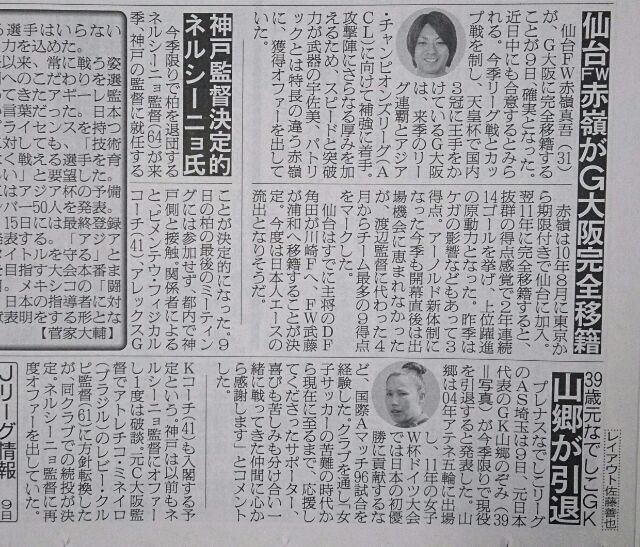 仙台FW赤嶺がG大阪完全移籍
仙台FW赤嶺真吾(31)
が、G大阪に完全移籍する
ことが9日、確実となった。
近日中にも合意するとみら
れる。今季リーグ戦とカッ
プ戦を制し、天皇杯で国内
3冠に王手をか
けているG大阪
は、来季のリー
グ連覇とアジア
チャンピオンズリーグ(A
CL)に向けて補強に着手。
攻撃陣にさらなる厚みを加
えるため、スピードと突破
力が武器の宇佐美、パトリ
ックとは特長の違う赤嶺
に、獲得オファーを出して
いた。
赤嶺は10年8月に東京か
ら期限付きで仙台に加入。
翌11年に完全移籍すると、
抜群の得点感覚で2年連続
14ゴールを挙げ、上位躍進
の原動力となった。昨季は
ケガの影響などもあって3
得点。アーノルド新体制に
なった今季も開幕直後は出
場機会に恵まれなかった
が、渡辺監督に代わった4
月からチーム最多の9得点
をマークした。
仙台はすでに主将のDF
角田が川崎Fへ、FW武藤
が浦和へ移籍することが決
定。今度は日本人エースの
流出となりそうだ。
神戸監督決定的
ネルシーニョ氏
今季限りで柏を退団する
ネルシーニョ監督(64)が来
季、神戸の監督に就任する
ことが決定的になった。9
日の柏の最後のミーティン
グには参加せず、都内で神
戸側と接触。関係者による
とビメンテウ・フィジカル
コーチ(41)アレックスG
Kコーチ(41)も入閣する予
定という。神戸は以前もネ
ルシーニョ監督にオファー
し1度は破談。元C大阪監
督でアトレチコ・ミネイロ
(ブラジル)のレビー・クル
ピ監督(61)に方針転換した
が、同クラブでの続投が決
定。ネルシーニョ監督に再
度オファーを出していた。
レイアウト 佐藤善也
39歳元なでしこGK
山郷が引退
プレナスなでしこリーグ
のAS埼玉は9日、元日本
代表のGK山郷のぞみ(39
=写真)が今季限りで現役
を引退すると発表した。山
郷は04年アテネ五輪に出場
し、11年の女子
W杯ドイツ大会
では日本の初優
勝に貢献するな
ど、国際Aマッチ96試合を
経験した。クラブを通し「女
子サッカーの苦難の時代か
ら現在に至るまで、応援し
てくださったサポーター、
喜びも苦しみも分け合い一
緒に戦ってきた仲間に心か
ら感謝します」とコメント
した。
る選手はいらない
力を込めた。
以来、常に戦う姿
へのこだわりを選
てきたアギーレ監
い言葉だった。日本
ライセンスを持つ
に対しても、「技術
く戦える選手を育
い」と要望した。
にはアジア杯の予備
バー50人を発表。
15日には最終登録
発表する。「アジア
タイトルを守る」と
を目指す大会本番ま
月。メキシコの「闘
、日本の指導者に対
状表明をする形とな
【菅家大輔】
Jリーグ情報
9日